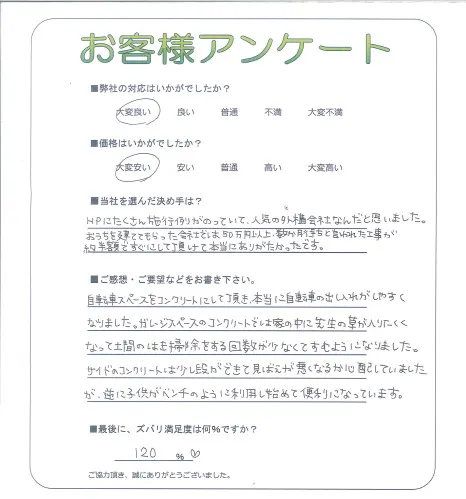 お客様アンケート
■弊社の対応はいかがでしたか？
大変良い 良い 普通 不満 大変不満
■価格はいかがでしたか？
大変安い 安い 普通 高い 大変高い
■当社を選んだ決め手は？
HPにたくさん施行例がのっていて、人気の外構会社なんだと思いました。
おうちを建ててもらった会社では80万円以上、数か月待ちと言われた工事が
約半額ですぐにして頂けて本当にありがたかったです。
■ご感想・ご要望などをお書き下さい。
自転車スペースをコンクリートにして頂き、本当に自転車の出し入れがしやすく
なりました。ガレージスペースのコンクリートでは家の中に先生の草が入りにくく
なって土間のはき掃除をする回数が少なくてすむようになりました。
サイドのコンクリートは少し段ができて見ばえが悪くなるか心配していました
が、逆に子供がベンチのように利用し始めて便利になっています。
■最後に、ズバリ満足度は何%ですか？
120 %♡
ご協力頂き、誠にありがとうございました。